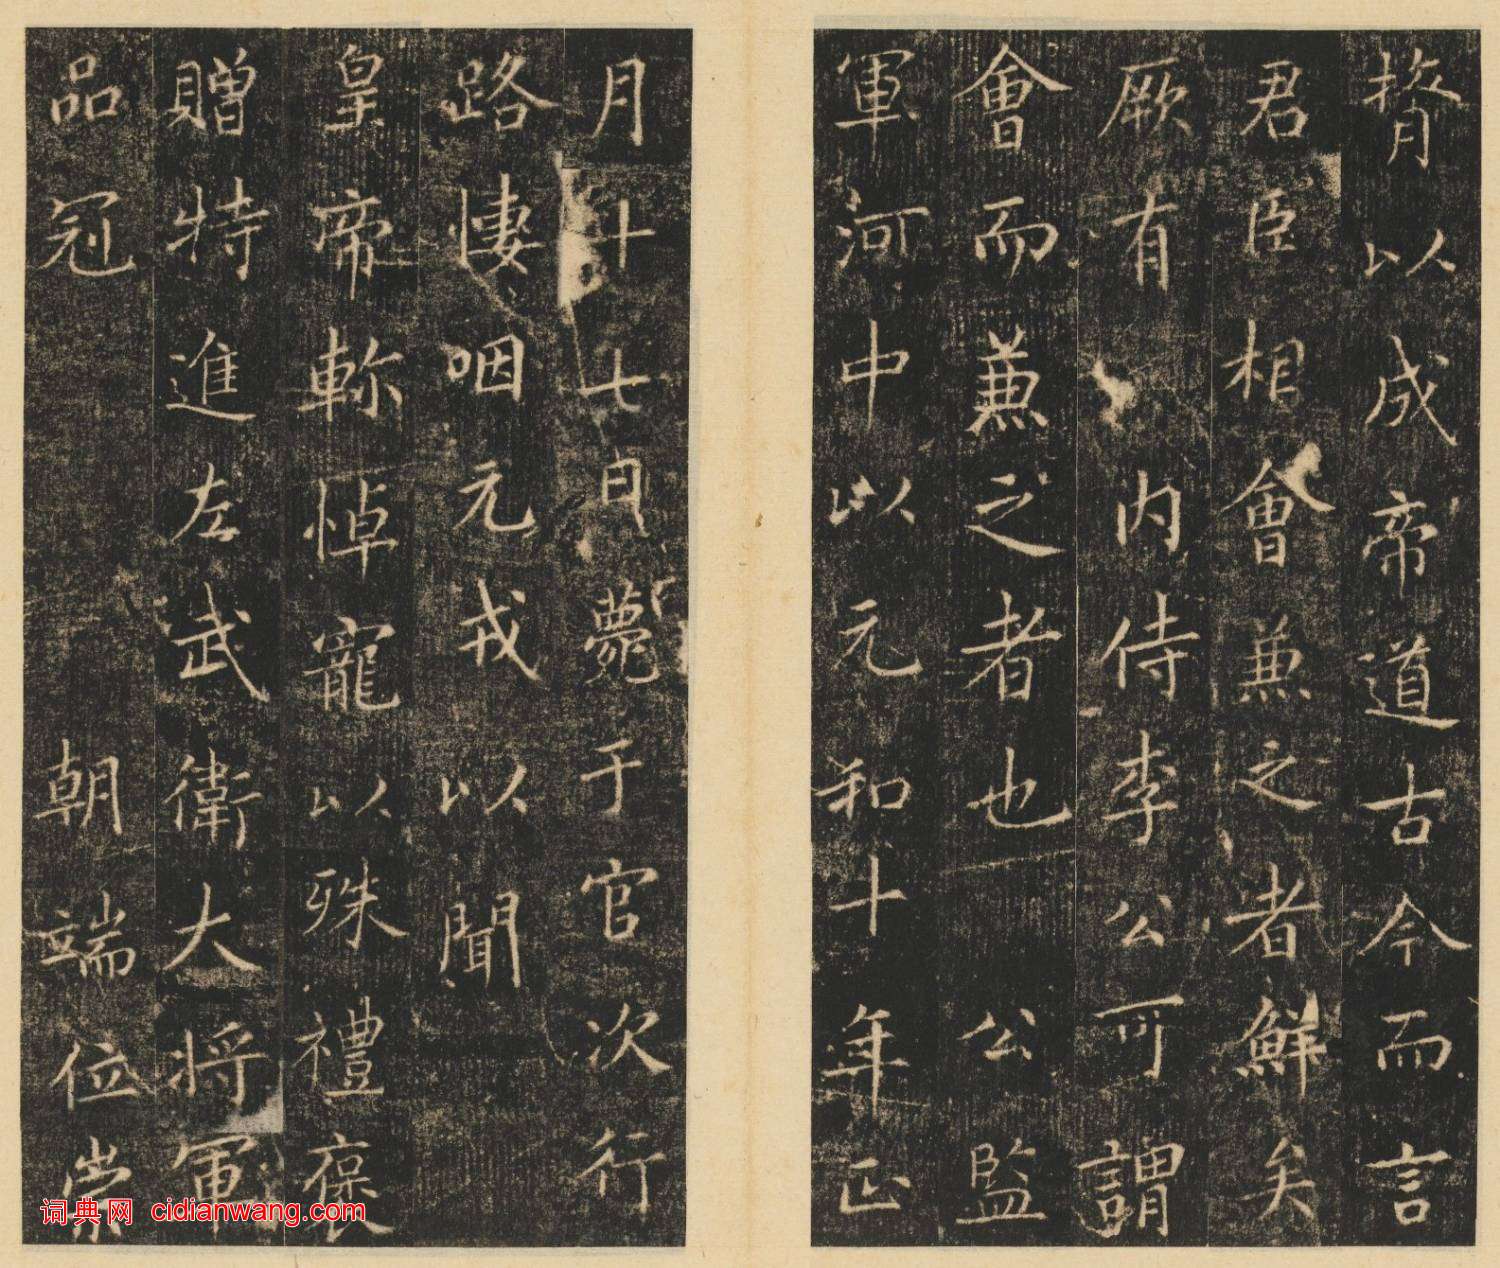 膂以成帝道古今而言
君臣相會兼之者鮮矣
厥有內侍李公可謂
會而兼之者也 公監
軍河中以元和十年正
月十七日薨于官次行
路悽咽元戎 以聞
皇帝軫悼寵以殊禮褒
贈特進左武衛大將軍
品冠 朝端位崇
词典网 cidianwang.com